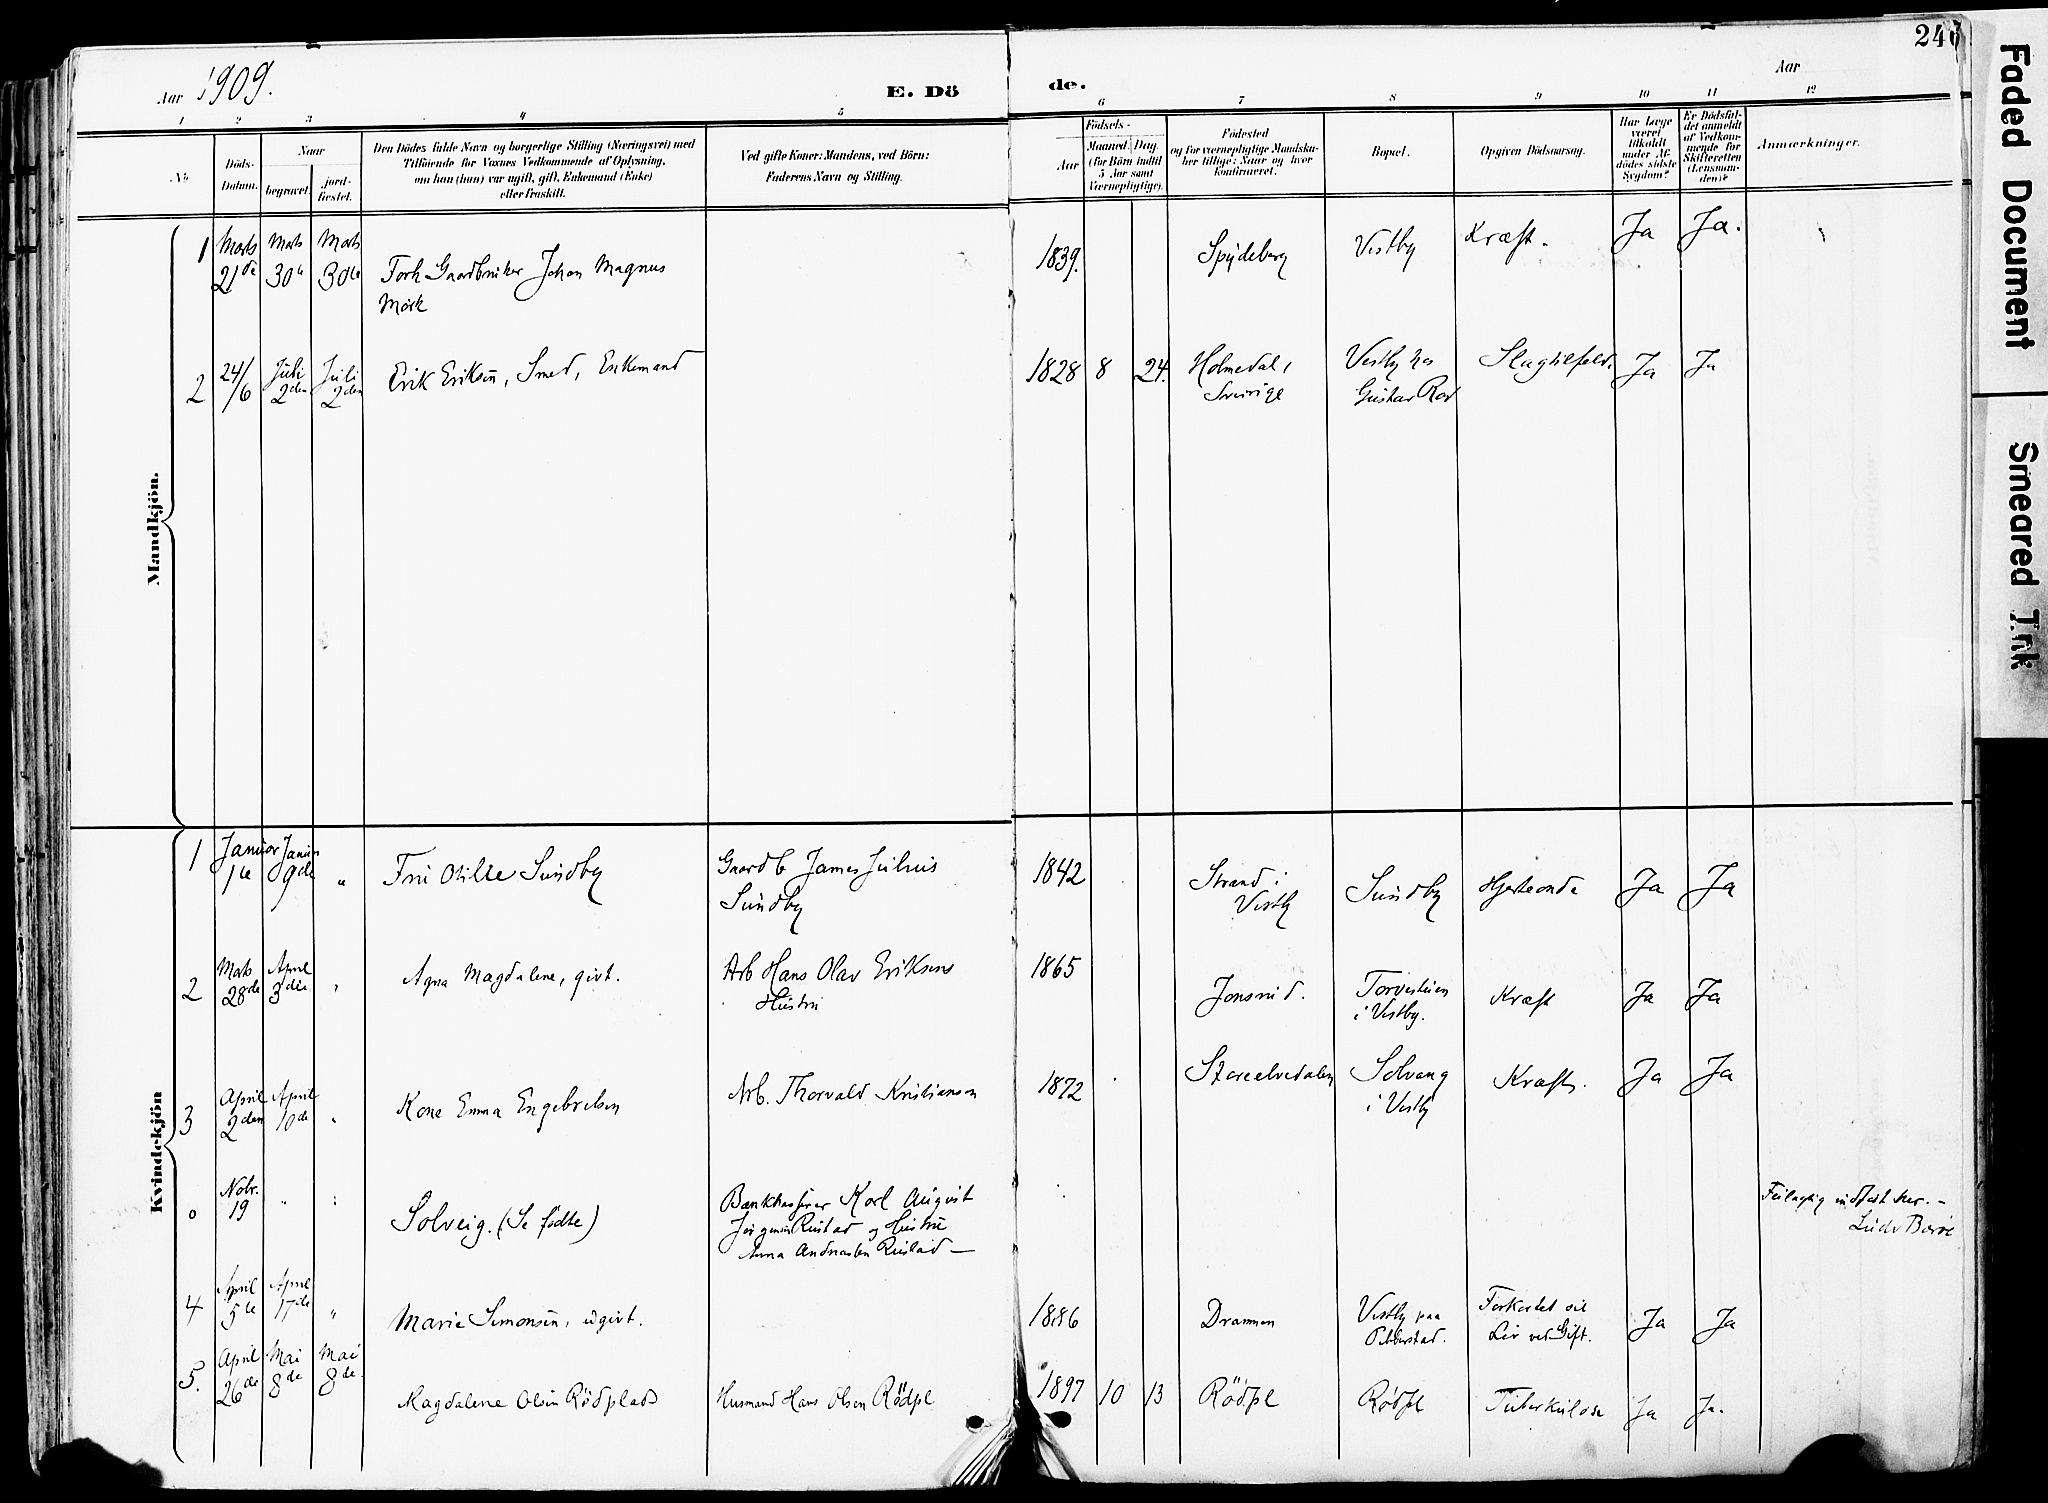 246
Aar 1909.
E. Dö
de.
Aar
1
2
3
4
5
6
7
8
9
10
11
12
No
Döds-
Datum.
Naar
begravet.
jord-
fæstet.
Den Dödes fulde Navn og borgerlige Stilling (Næringsvei) med
Tilföiende for Voxnes Vedkommende af Oplysning,
om han (hun) var ugift, gift, Enkemand (Enke)
eller fraskilt.
Ved gifte Koner: Mandens, ved Börn:
Faderens Navn og Stilling.
Födsels-
Aar
Maaned.
Dag.
(for Börn indtil
5 Aar samt
Værnepligtige).
Födested
og for værnepligtige Mandska-
ber tillige: Naar og hvor
konfirmeret.
Bopæl.
Opgiven Dödsaarsag.
Har Læge
været
tilkaldt
under Af-
dödes sidste
Sygdom?
Er Dödsfal-
det anmeldt
af Vedkom-
mende for
Skifteretten
(Lensman-
den)?
Anmærkninger.
Mandkjön.
1 Marts 21de Marts 30te Marts 30te Forh Gaardbruker Johan Magnus
Mørk
1839. Spydeberg Vestby Kræft. Ja Ja.
2 24/6 Juli 2den Juli 2den Erik Eriksen, Smed, Enkemand 1828 8 24. Holmedal,
Sverige
Vestby hos
Gustav Rød
Slagtilfeld. Ja Ja
Kvindekjön
1 Januar 1te Januar 9de " Fru Otilie Sundby Gaardb James Julius
Sundby
1842 Strand i
Vestby
Sundby Hjerteonde Ja Ja
2 Marts 28de April 3die " Agna Magdalene, givt. Arb Hans Olav Eriksens
Hustru
1865 Jonsrud. Torvestuen
i Vestby.
Kræft Ja Ja
3 April 2den April 10de " Kone Emma Engebretsen Arb. Thorvald Kristiansen 1872 Storeelvedalen Solvang
i Vestby
Kræft. Ja Ja
0 Nobr. 19 " " Solveig. (Se fødte) Bankkasserer Karl August
Jørgensen Rustad og Hustru
Anna Andreasen Rustad —
Feilagtig indført her. –
Ludv Barøe
4 April 5te April 17de " Marie Simonsen, ugivt. 1886 Drammen Vestby paa
Pebberstad.
Forkortet sit
Liv ved Gift.
Ja Ja
5. April 26de Mai 8de Mai 8de. Magdalene Olsen Rödplads Husmand Hans Olsen Rödpl 1897 10 13 Rödpl Rödpl Tuberkulose Ja Ja.
Faded Document
Smeared Ink